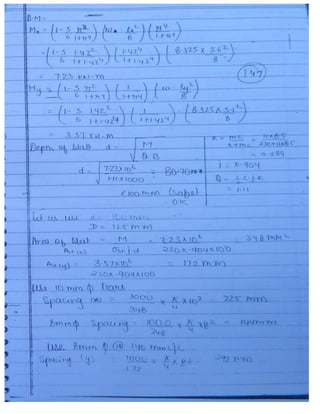 B.M.
Mx = (1 - 5/6 r²/(1+r⁴)) (w × lx²/8) (r⁴/(1+r⁴))
= (1 - 5/6 1.42²/(1+1.42⁴)) (1.42⁴/(1+1.42⁴)) (8.325 × 3.6²/8)
= 7.23 kN-m
147
My = (1 - 5/6 r²/(1+r⁴)) (1/(1+r⁴)) (w ly²/8)
= (1 - 5/6 1.42²/(1+1.42⁴)) (1/(1+1.42⁴)) (8.325 × 5.1²/8)
= 3.57 kN-m
Depth of slab d = √(M/Q.B)
d = √(7.23×10⁶/1.11×1000) = 80.70mm
<100mm (safe)
OK
= 0.289
j = 0.904
Q = ½.c.j.k
= 1.11
Let us use d = 100mm
D = 125mm
Area of steel = M/σst j d = 7.23×10⁶/230×.904×100 = 348 mm²
Ast(y) = 3.57×10⁶/230×.904×100 = 172 mm
Use 10 mm φ bars
Spacing = 1000/348 × π/4 × 10² = 225 mm
8mm φ Spacing = 1000/348 × π/4 × 8² =
Use 8mm φ @ 140 mm c/c
Spacing (y) = 1000/172 × π/4 × 8² = 292 mm